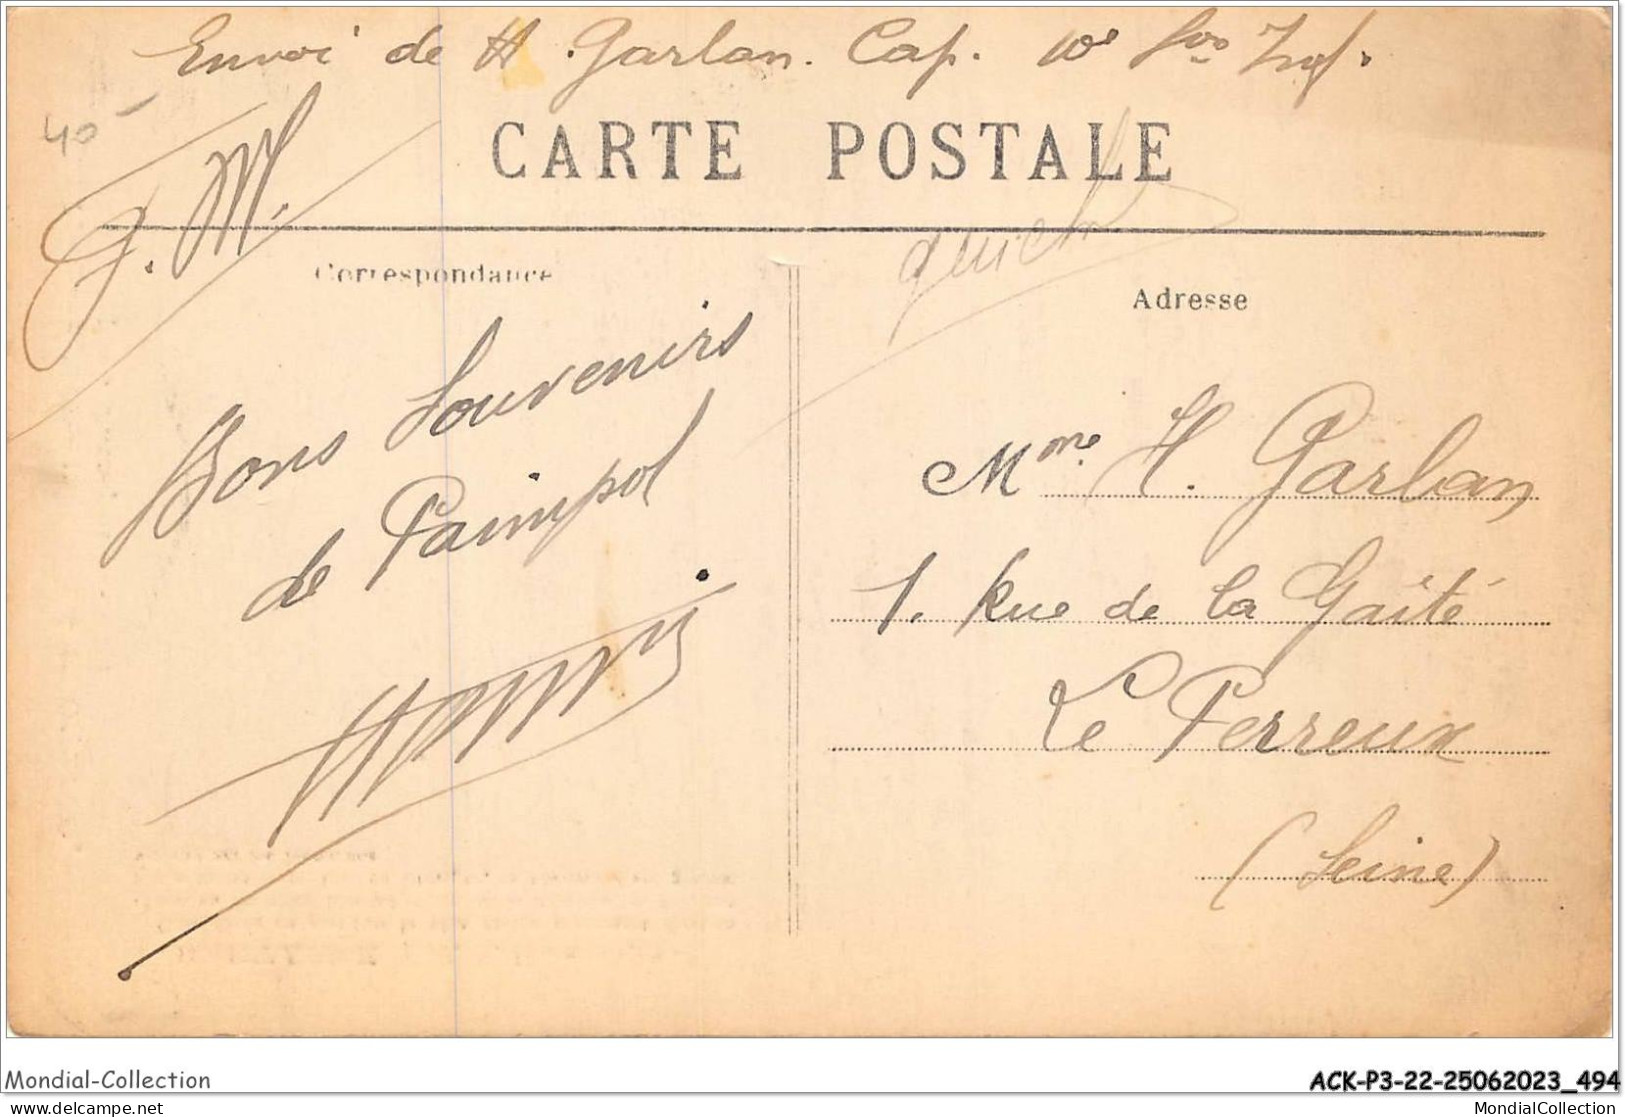 Envoi de H. Garlan. Cap. 10e
40-
F.M.
CARTE POSTALE
Correspondance
Adresse
Bons Souvenirs
de Paimpol
Henri
Mme H. Garlan
1. Rue de la Gaîté
Le Perreux
(Seine)
Mondial-Collection
ACK-P3-22-25062023_494
delcampe.net
MondialCollection